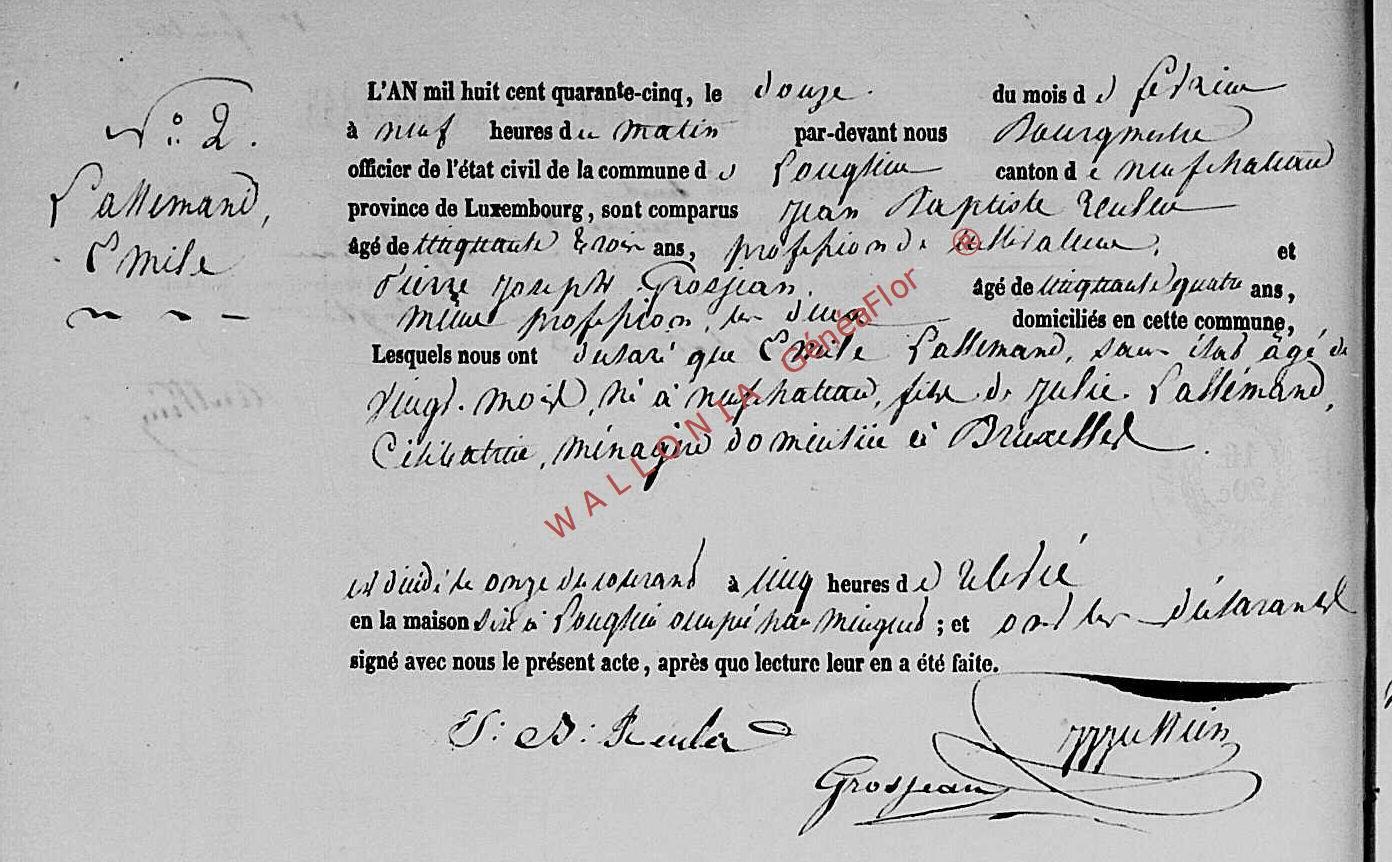 N° 2.
Lallemand,
Emile
L'AN mil huit cent quarante-cinq, le douze du mois d e fevrier
à neuf heures du matin par-devant nous Bourgmestre
officier de l'état civil de la commune d e Longlier canton d e neufchateau
province de Luxembourg, sont comparus Jean Baptiste Reuler
âgé de cinquante trois ans, profession de cultivateur, et
Pierre Joseph Grosjean, âgé de cinquante quatre ans,
même profession, les deux domiciliés en cette commune,
Lesquels nous ont declaré que Emile Lallemand, sans état âgé de
vingt mois, né à neufchateau, fils de Julie Lallemand,
Célibataire, ménagère domiciliée à Bruxelles.
est décédé le onze du courant à cinq heures d e relevé
en la maison sise à Longlier occupé par ; et ont les déclarants
signé avec nous le présent acte, après que lecture leur en a été faite.
J: B: Reuler
Grosjean
WALLONIA GénéaFlor ®